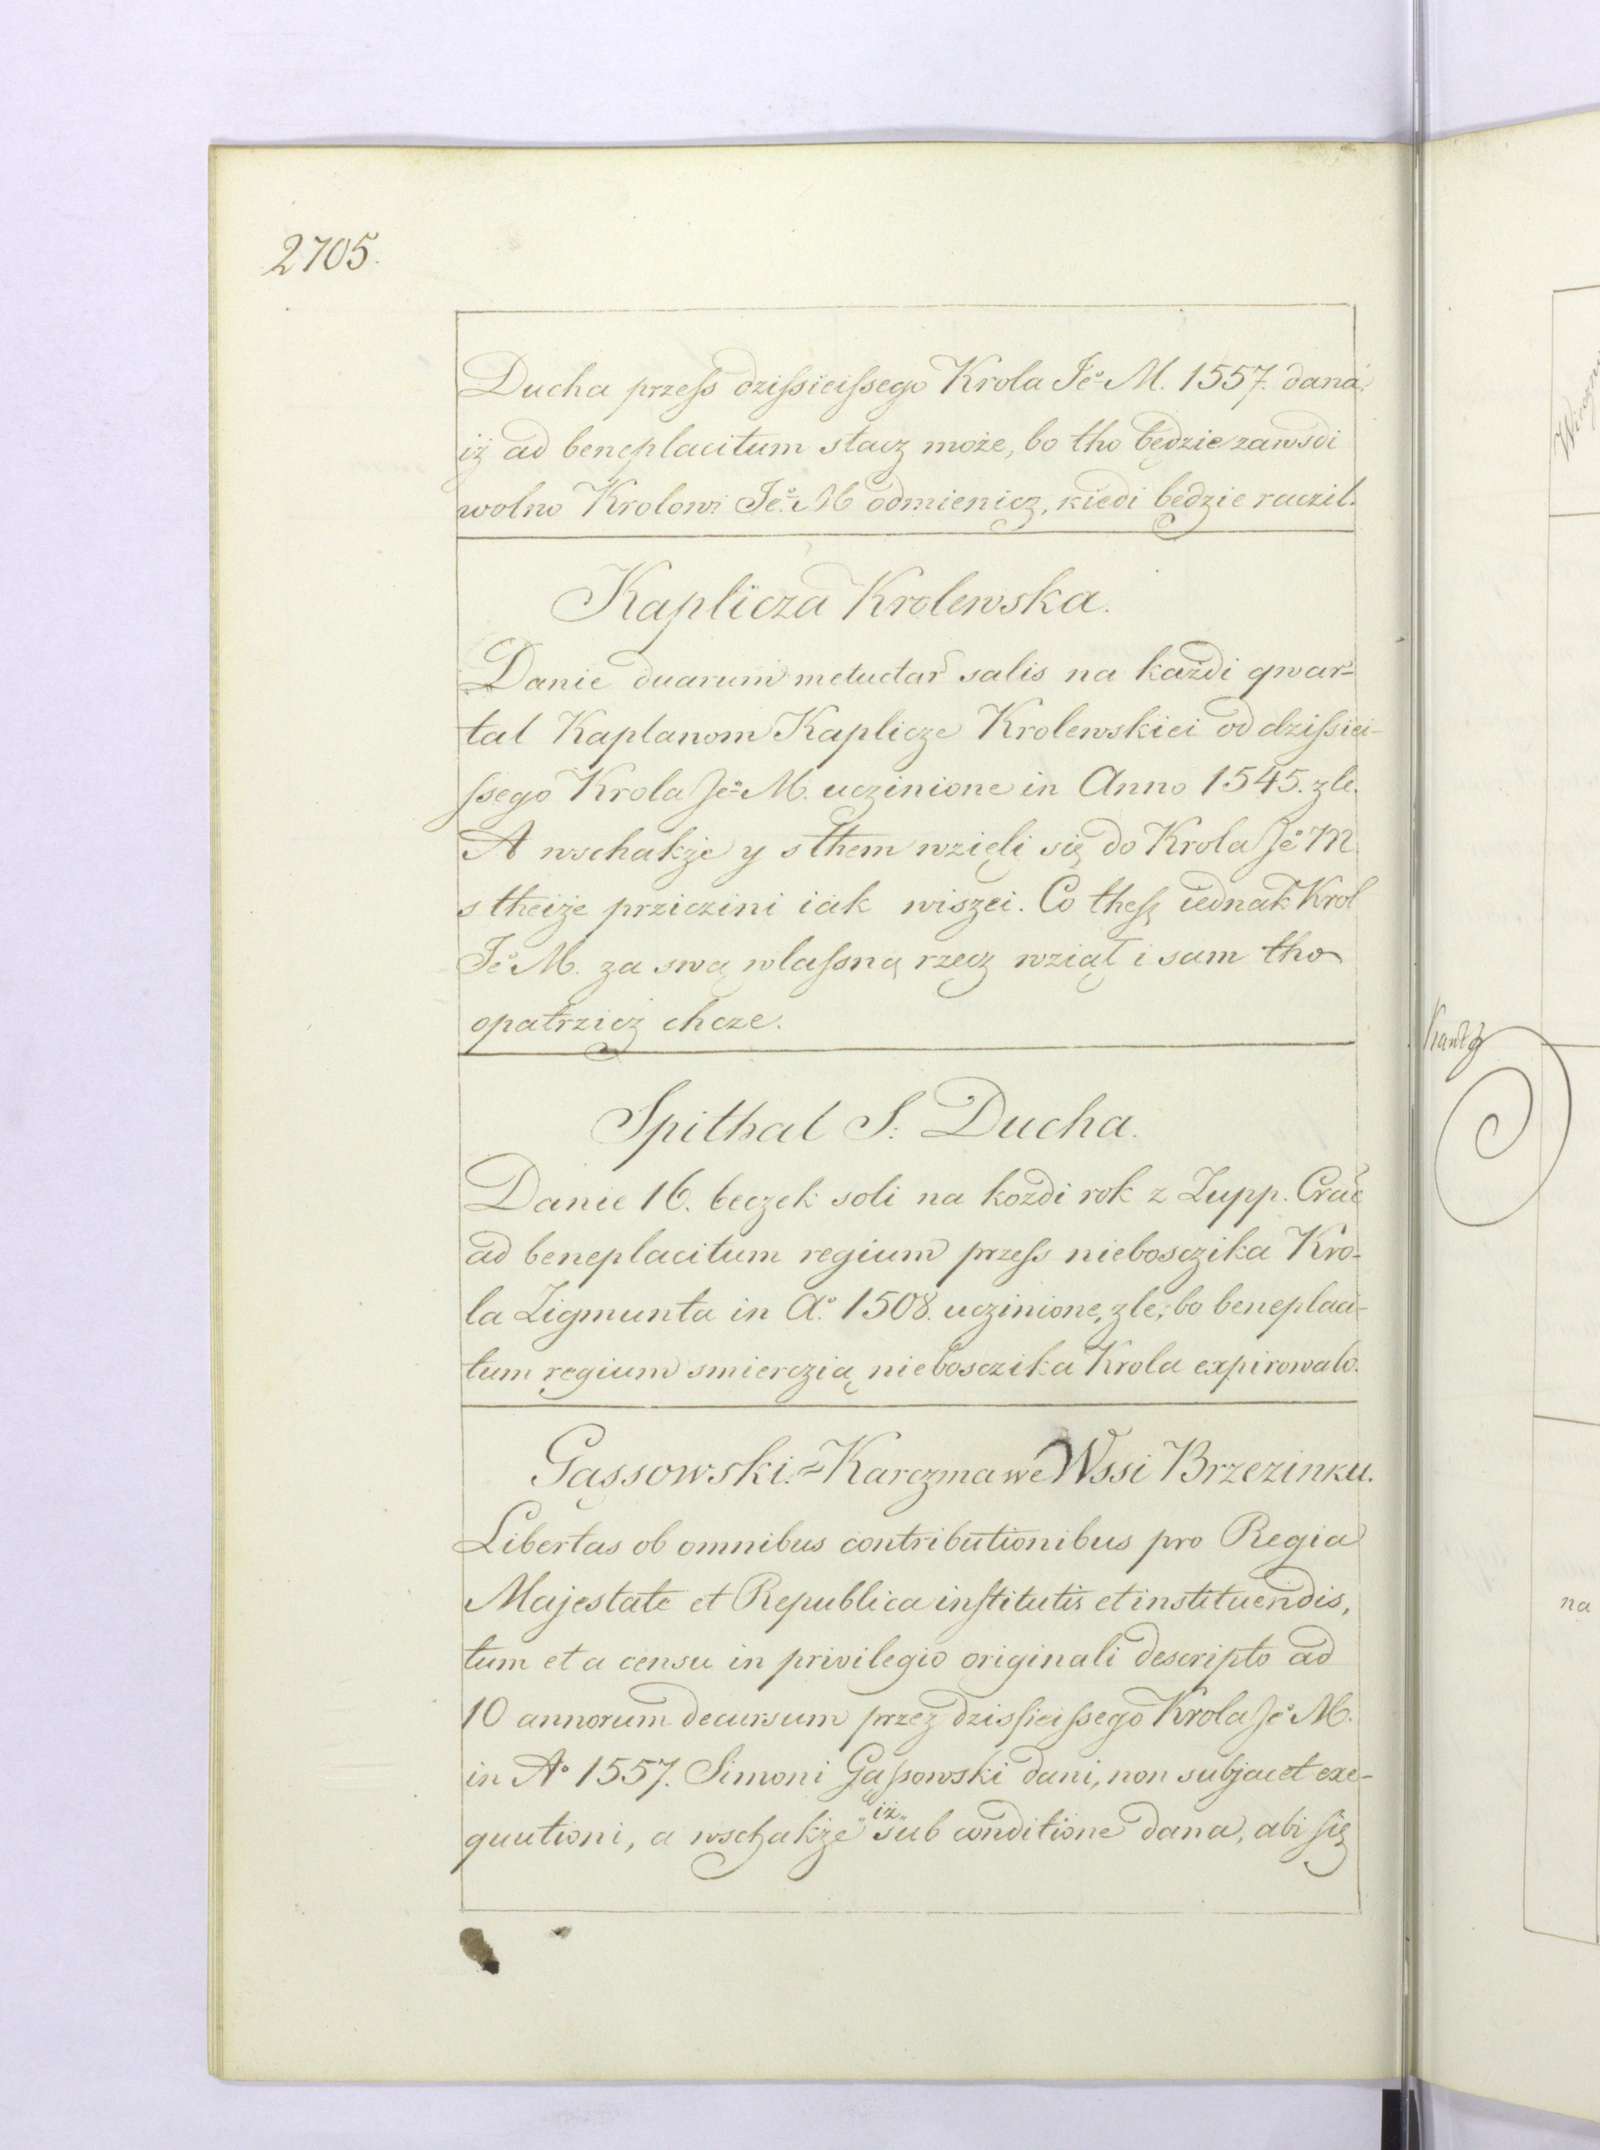 2705.
Ducha przeſs dziſsieiſsego Krola Jeº M. 1557. daná,
iż ad beneplacitum stacz może, bo tho będzie zawsdi
wolno Krolowi Jeº M odmienicz, kiedi będzie raczil.
Kaplicza Krolewska.
Danie duarum metuctar̃ salis na każdi qwar=
tal Kaplanom Kaplicze Krolewskiei od dziſsiei-
ſsego Krola Jeº M. uczinione in Anno 1545. zle.
A wschakże y sthem wzięli się do Krola Jeº M
s theiże prziczini iak wiszei. Co theſz iednak Krol
Jeº M. za swą wlaſsną rzecz wziął i sam tho
opatrzicz chcze.
Spithal S: Ducha.
Danie 16. beczek soli na kozdi rok z Zupp. Crac̃
ad beneplacitum regium przeſs nieboszczika Kro-
la Zigmunta in Aº 1508. uczinione, zle, bo beneplaci-
tum regium smierczią nieboszczika Krola expirowalo.
Gąssowski. = Karczma we Wssi Brzezinku.
Libertas ob omnibus contributionibus pro Regia
Majestate et Republica inſtitutis et instituendis,
tum et a censu in privilegio originali descripto ad
10 annorum decursum przez dzisſieiſsego Krola Jeº M.
in Aº 1557. Simoni Gąſsowski dani, non subjacet exe-
quutioni, a wschakże "iż" sub conditione dana, abi ſię
Kantz
na